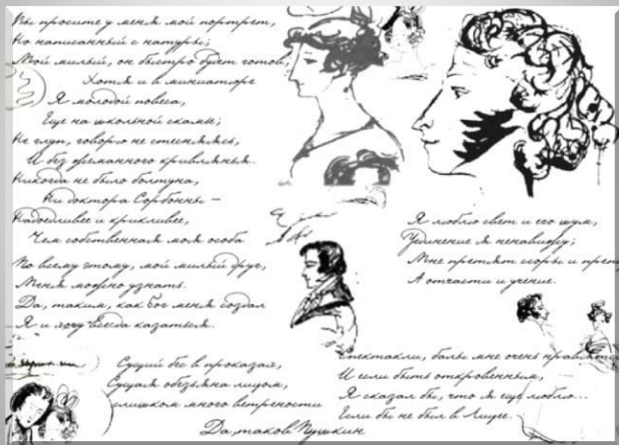 Вы просите у меня мой портрет,
Но написанный с натуры;
Мой милый, он быстро будет готов,
Хотя и в миниатюре
Я молодой повеса,
Еще на школьной скамье;
Не глуп, говорю не стесняясь,
И без жеманного кривлянья.
Никогда не было болтуна,
Ни доктора Сорбонны –
Надоедливее и крикливее,
Чем собственная моя особа
По всему этому, мой милый друг,
Меня можно узнать.
Да, таким, как бог меня создал
Я и хочу всегда казаться.
Сущий бес в проказах,
Сущая обезьяна лицом,
слишком много ветрености
Да, таков Пушкин
Я люблю свет и его шум,
Уединение я ненавижу;
Мне претят ссоры и
А отчасти и учение.
Спектакли, балы мне очень
И если быть откровенным,
Я сказал бы, что я ещё люблю...
Если бы не был в Лицее.